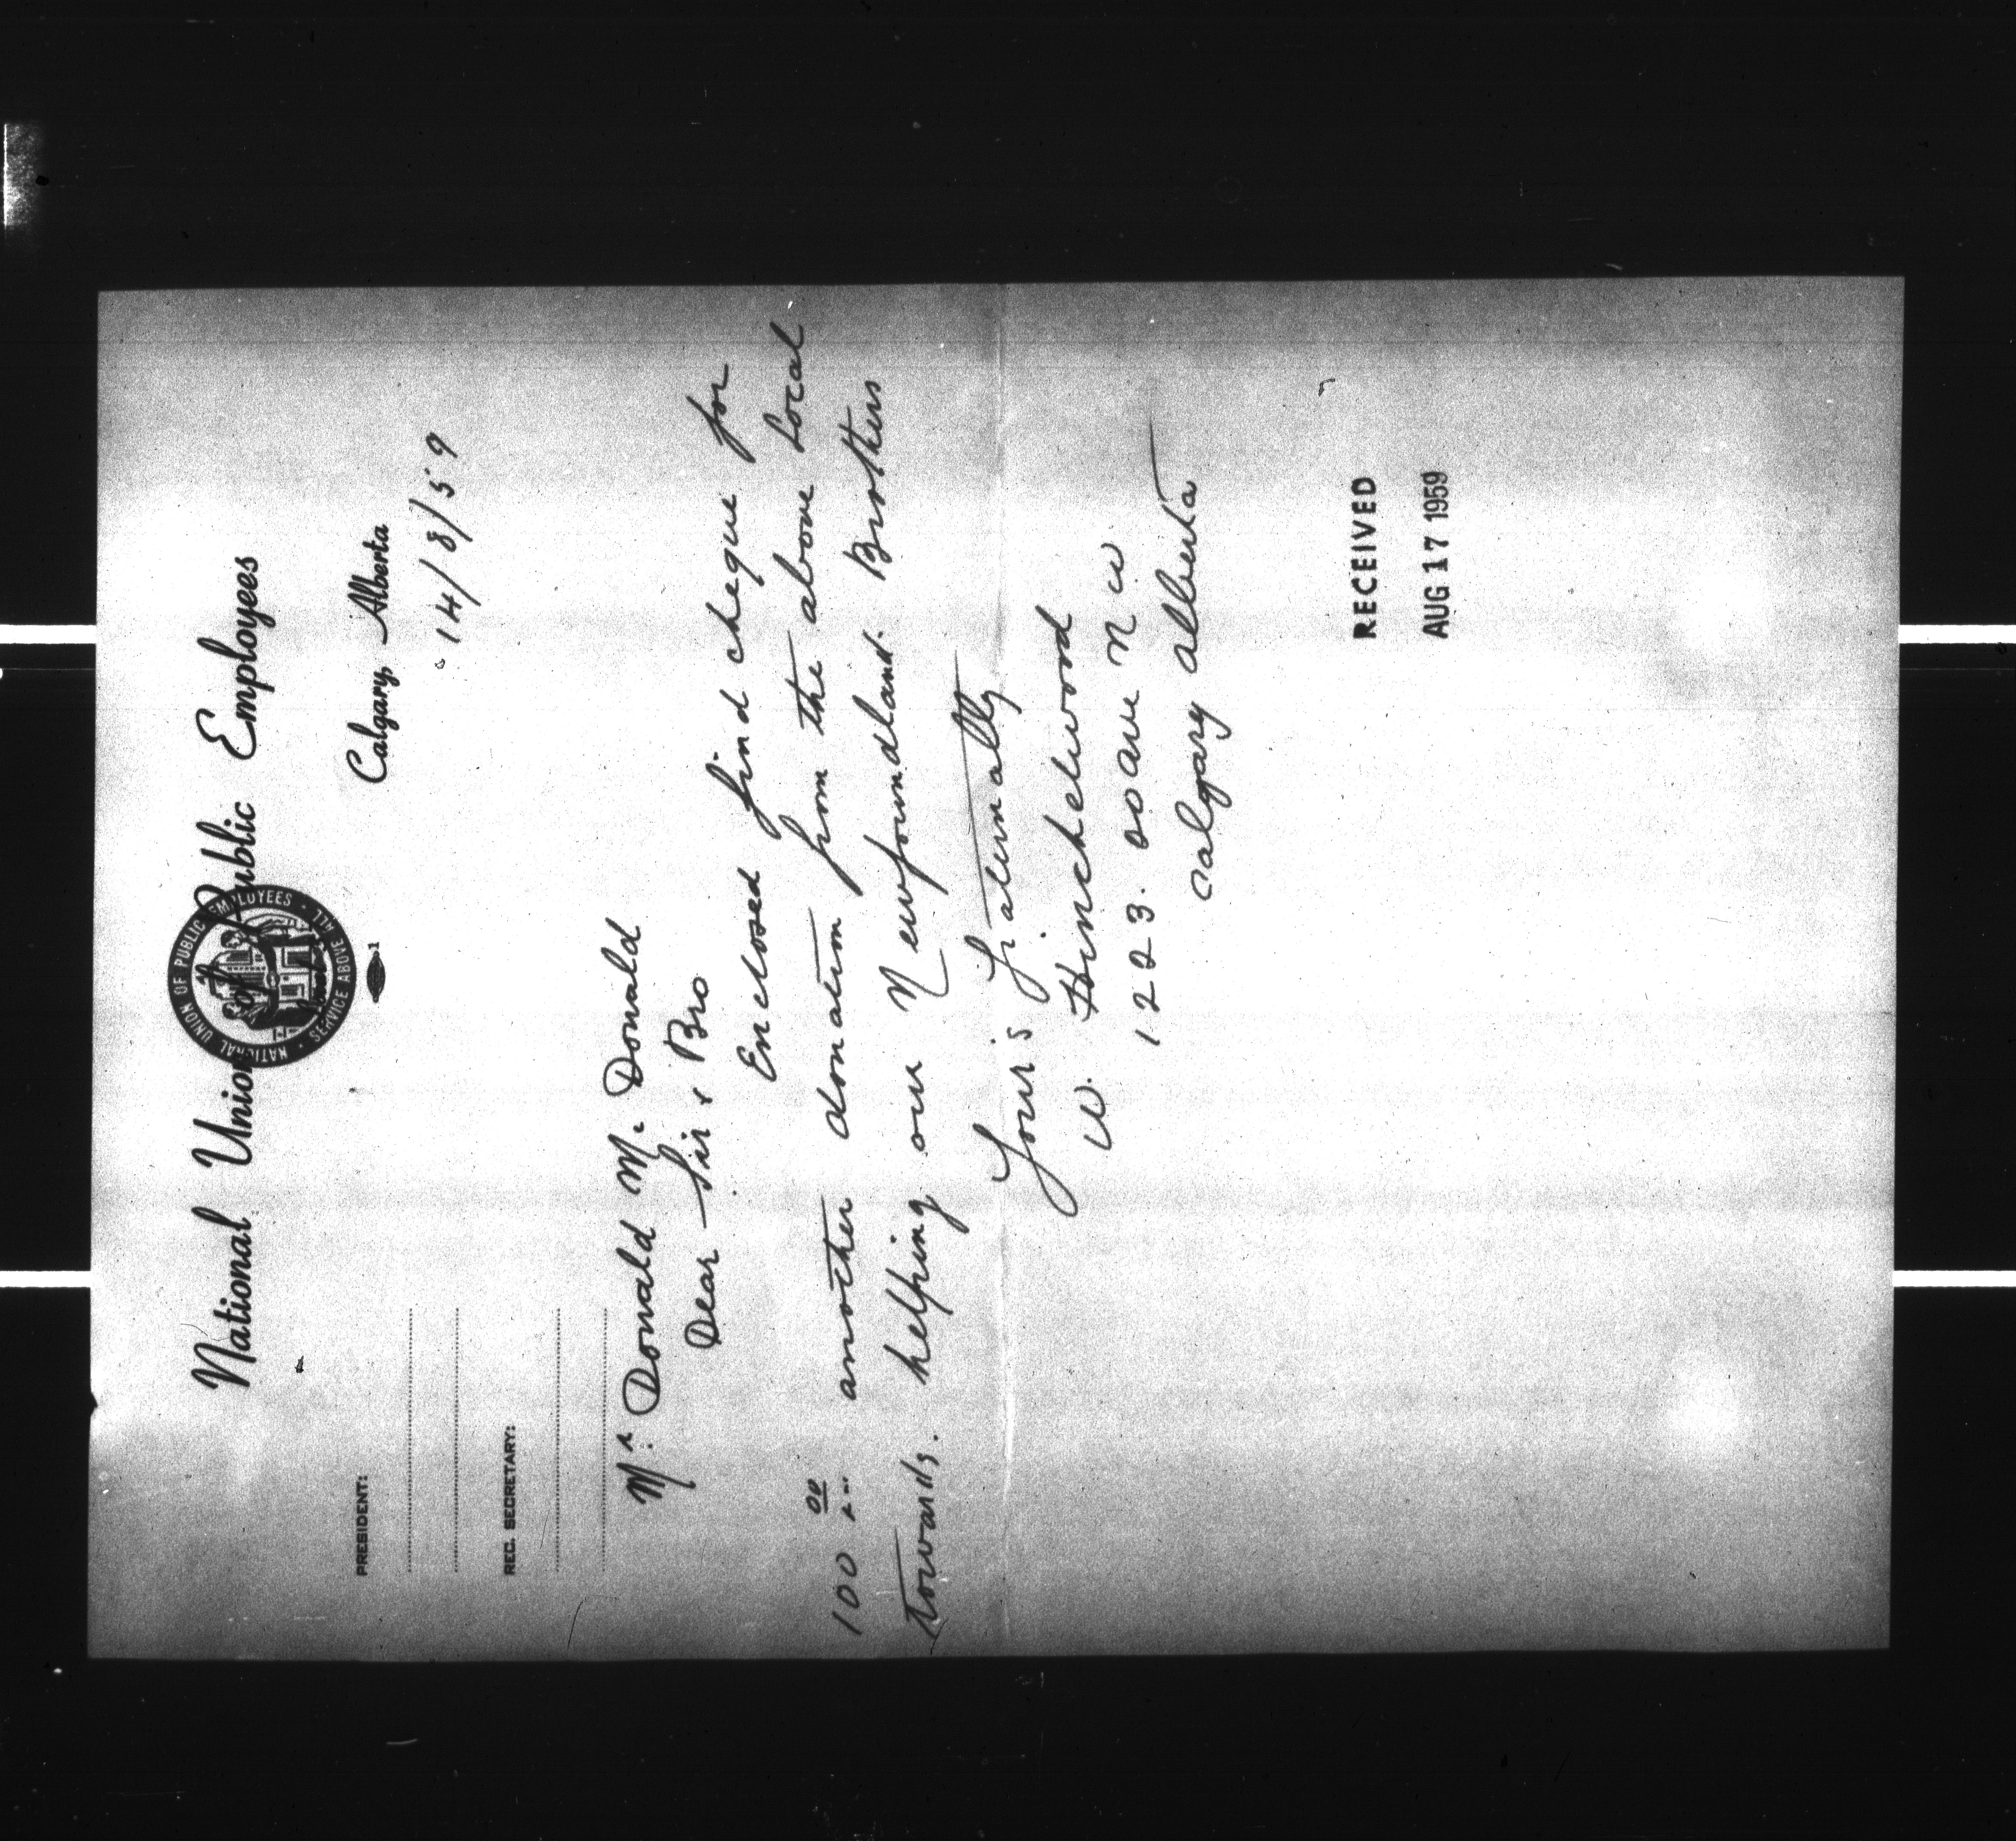 National Union of Public Employees
NATIONAL UNION OF PUBLIC EMPLOYEES · SERVICE ABOVE ALL ·
Calgary, Alberta
14/8/59
PRESIDENT:
REC. SECRETARY:
Mr Donald Mc Donald
Dear Sir & Bro
Enclosed find cheque for
100 00 another donation from the above Local
towards. helping our Newfoundland. Brothers
Your's Fraternally
W. Hinchelwood
1223. Ave N W
Calgary Alberta
RECEIVED
AUG 17 1959